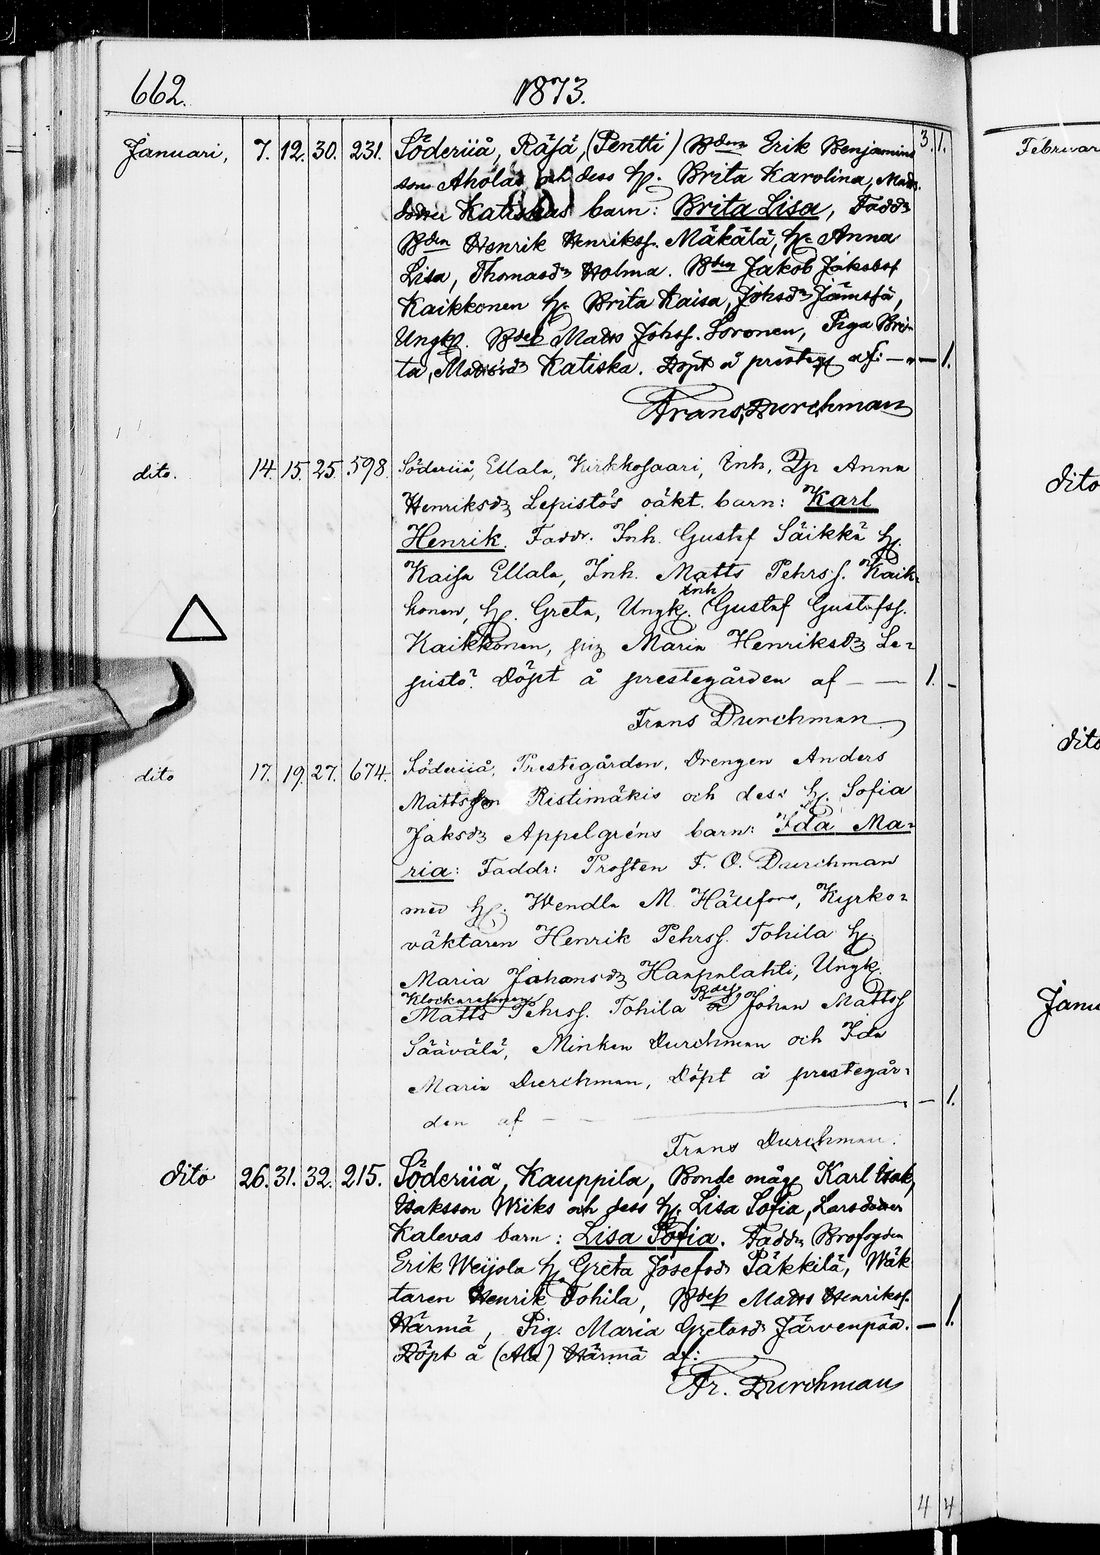 662. 1873.
Januari, 7. 12. 30. 231. Söderiiå, Räsä, (Pentti) Bden Erik Benjamins 3. 1.
son Aholas och dess h. Brita Karolina, Matts
doter Katiskas barn: Brita Lisa, Faddr
Bden Henrik Henrikss. Mäkälä, h. Anna
Lisa, Thomasdr Holma. Bden Jakob Jakobss
Kaikkonen h. Brita Kaisa, Johsdr Jämsä,
Ungk. Bdes. Matts Johss. Soronen, Piga Bri-
ta, Mattsdr Katiska. Döpt å presteg af: — — 1.
Frans Durchman
dito. 14. 15. 25. 598. Söderiiå, Ellala, Kirkkosaari, Inh. Anna
Henriksdr Lepistös oäkt. barn: Karl
Henrik. Faddr. Inh. Gustaf Säikkä h.
Kaisa Ellala, Inh. Matts Pehrss. Kaik-
inh
konen, h. Greta, Ungk. Gustaf Gustafss.
Kaikkonen, pig Maria Henriksdr Le-
pistö. Döpt å prestegården af — — 1. -
Frans Durchman
dito 17. 19. 27. 674. Söderiiå, Prestegården. Drengen Anders
Mattsson Ristimäkis och dess h. Sofia
Jaksdr Appelgréns barn: Ida Ma-
ria: Faddr: Prosten F. O. Durchman
med h. Wendla M. Häufors, Kyrko-
väktaren Henrik Pehrss. Tohila h.
Maria Johansdr Haapalahti, Ungk.
Klockaresonen Bdes.
Matts Pehrss. Tohila Johan Mattss
Säävälä, Minken Durchman och Ida
Maria Durchman, Döpt å prestegår-
den af — — 1.
Frans Durchman.
dito 26. 31. 32. 215. Söderiiå, Kauppila, Bonde måge Karl Isak,
Isaksson Wiiks och dess h. Lisa Sofia, Larsdoter
Kalevas barn: Lisa Sofia. Faddr Brofogden
Erik Weijola h. Greta Josefsdr Päkkilä, Wäk
taren Henrik Tohila, Bdes Matts Henrikss.
Härmä, Pig. Maria Gretasdr Järvenpää. — 1.
Döpt å (Ala) Härmä af:
Fr. Durchman
4 4
Februar
dito
dito
Janu